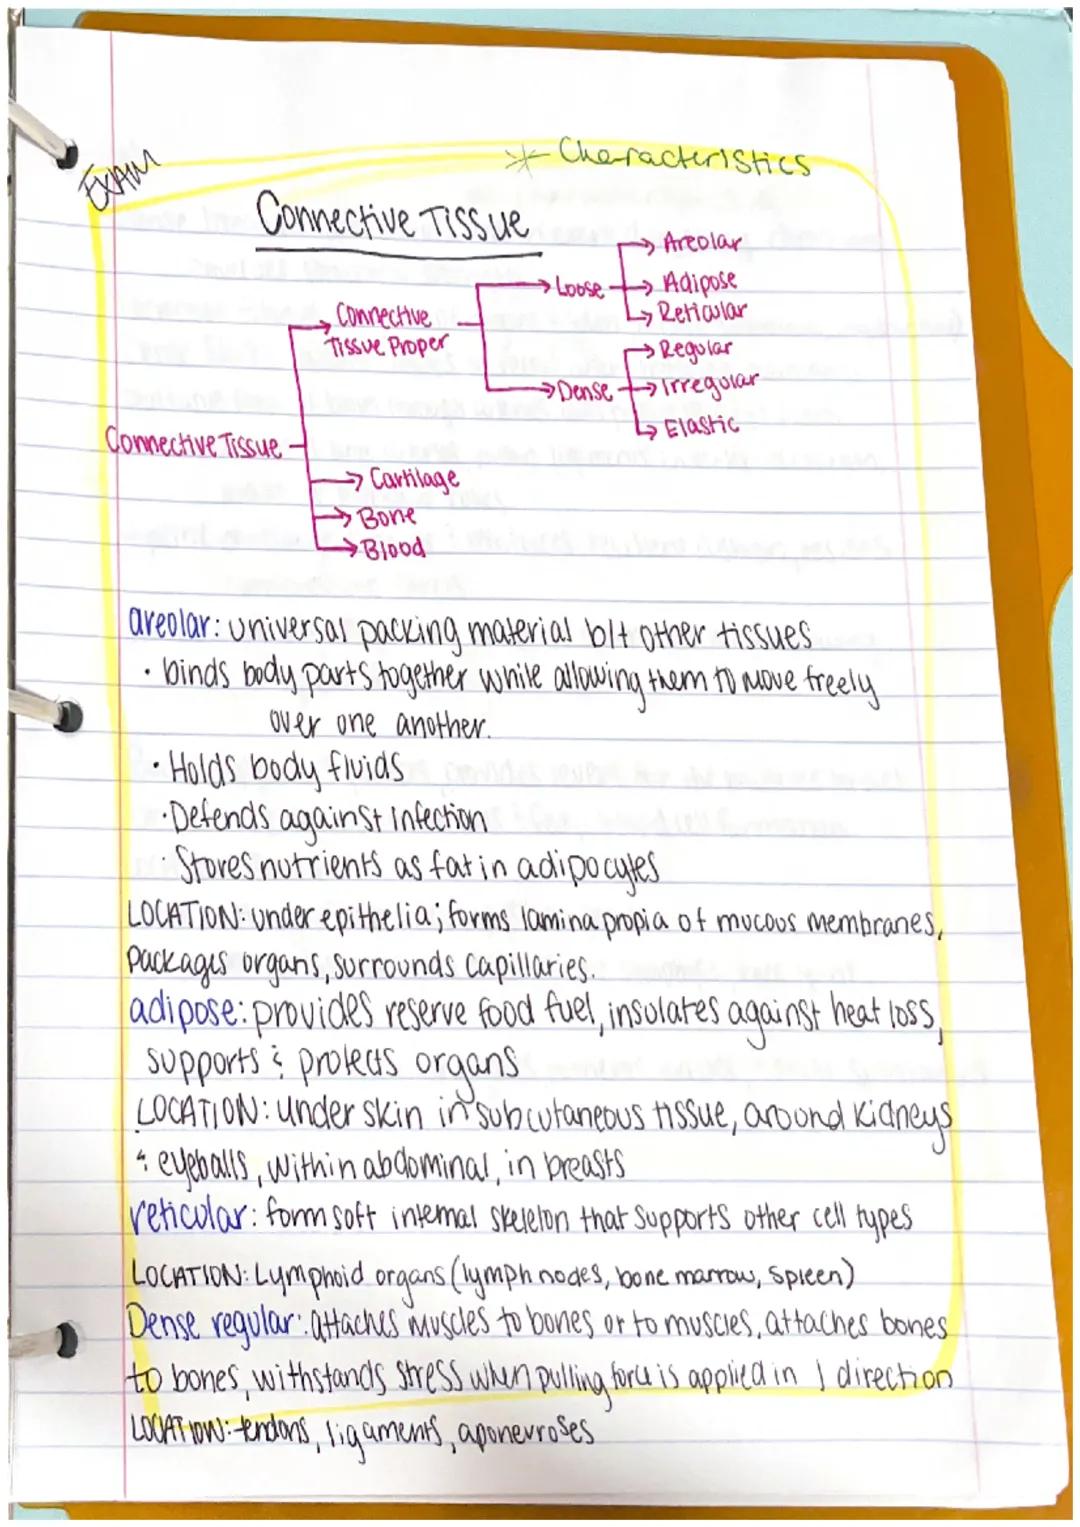 EXAM
* Characteristics
Connective Tissue
→ Areolar
→ Loose → Adipose
→ Reticular
→ Connective Tissue Proper
→ Regular
→ Dense → Irregular
→ Elastic
Connective Tissue
→ Cartilage
→ Bone
→ Blood
areolar: universal packing material b/t other tissues
· binds body parts together while allowing them to move freely
over one another.
· Holds body fluids
· Defends against Infection
· Stores nutrients as fat in adipocytes
LOCATION: under epithelia; forms lamina propia of mucous membranes,
packages organs, surrounds capillaries.
adipose: provides reserve food fuel, insulates against heat loss,
supports & protects organs
LOCATION: under skin in subcutaneous tissue, around kidneys
& eyeballs, within abdominal, in breasts
reticular: form soft internal skeleton that supports other cell types
LOCATION: Lymphoid organs (lymph nodes, bone marrow, spleen)
Dense regular: attaches muscles to bones or to muscles, attaches bones
to bones, withstands stress when pulling force is applied in 1 direction
LOCATION: tendons, ligaments, aponeuroses